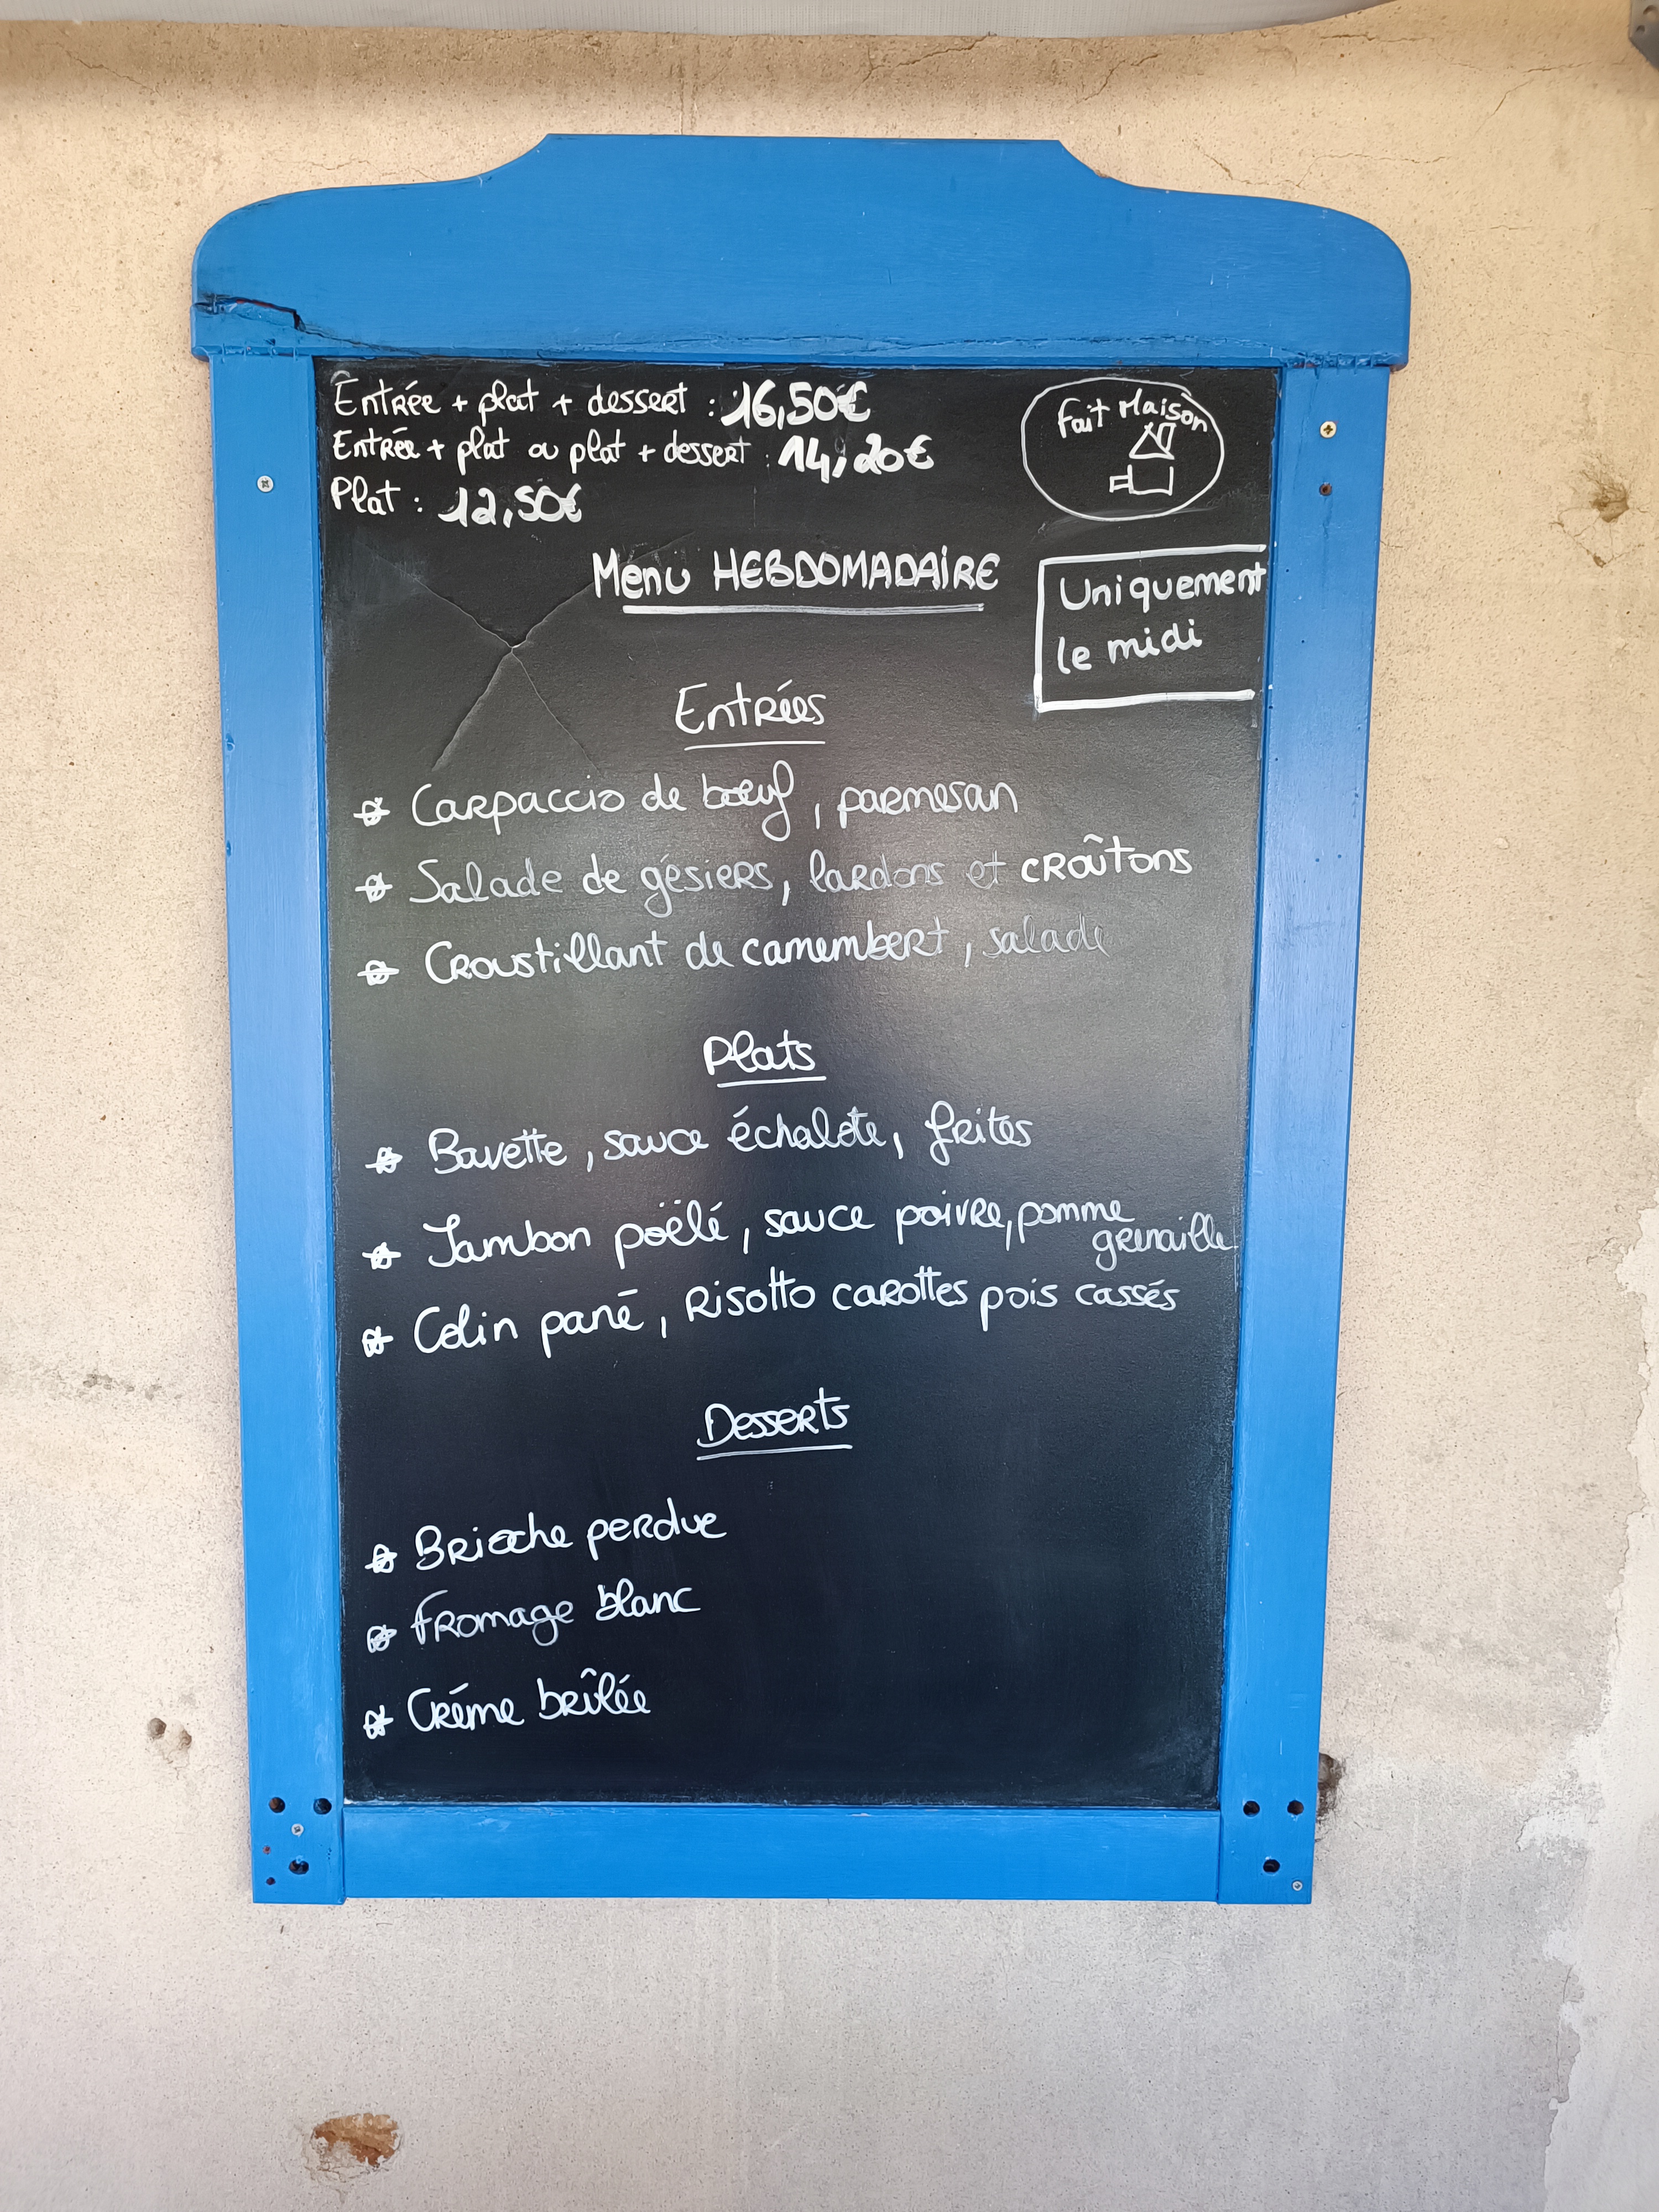 Entrée + plat + dessert : 16,50€
Entrée + plat ou plat + dessert : 14,20€
Plat : 12,50€
Fait Maison
Menu HEBDOMADAIRE
Uniquement
le midi
Entrées
Carpaccio de bœuf, parmesan
Salade de gésiers, lardons et croûtons
Croustillant de camembert, salade
Plats
Bavette, sauce échalote, frites
Jambon poëlé, sauce poivre, pomme
grenaille
Colin pané, Risotto carottes pois cassés
Desserts
Brioche perdue
Fromage blanc
Créme brûlée